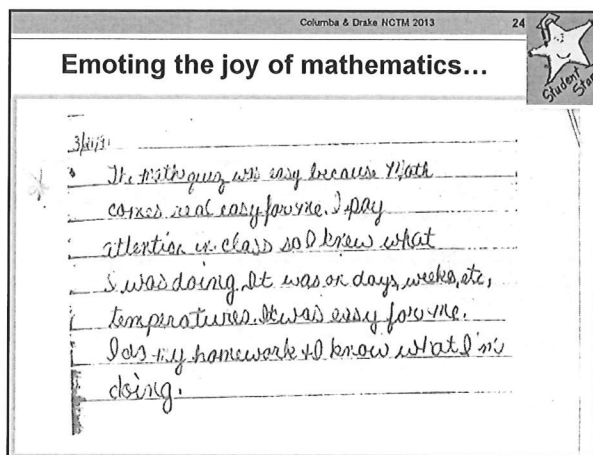 Columba & Drake NCTM 2013 24
Emoting the joy of mathematics...
Student Star
The math quiz was easy because Math
comes real easy for me. I pay
attention in class so I knew what
I was doing. It was on days, weeks, etc,
temperatures. It was easy for me.
I do my homework + I know what I'm
doing.